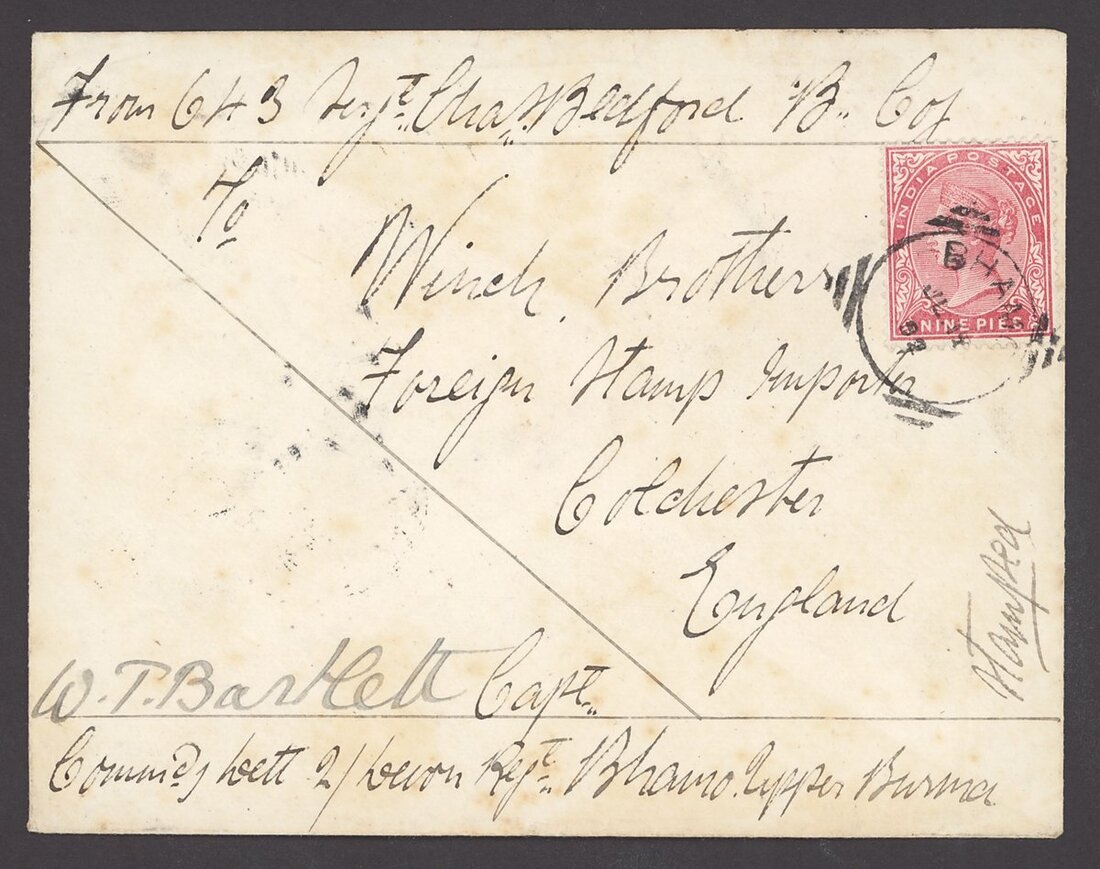 From 643 Sergt. Chas. Bedford "B" Coy
To
Winch Brothers
Foreign Stamp Importer
Colchester
England
INDIA POSTAGE
NINE PIES
BHAMO
B
JL 14
Stamped
W.T. Bartlett Capt.
Commdg Dett 2/ Devon Regt. Bhamo Upper Burma